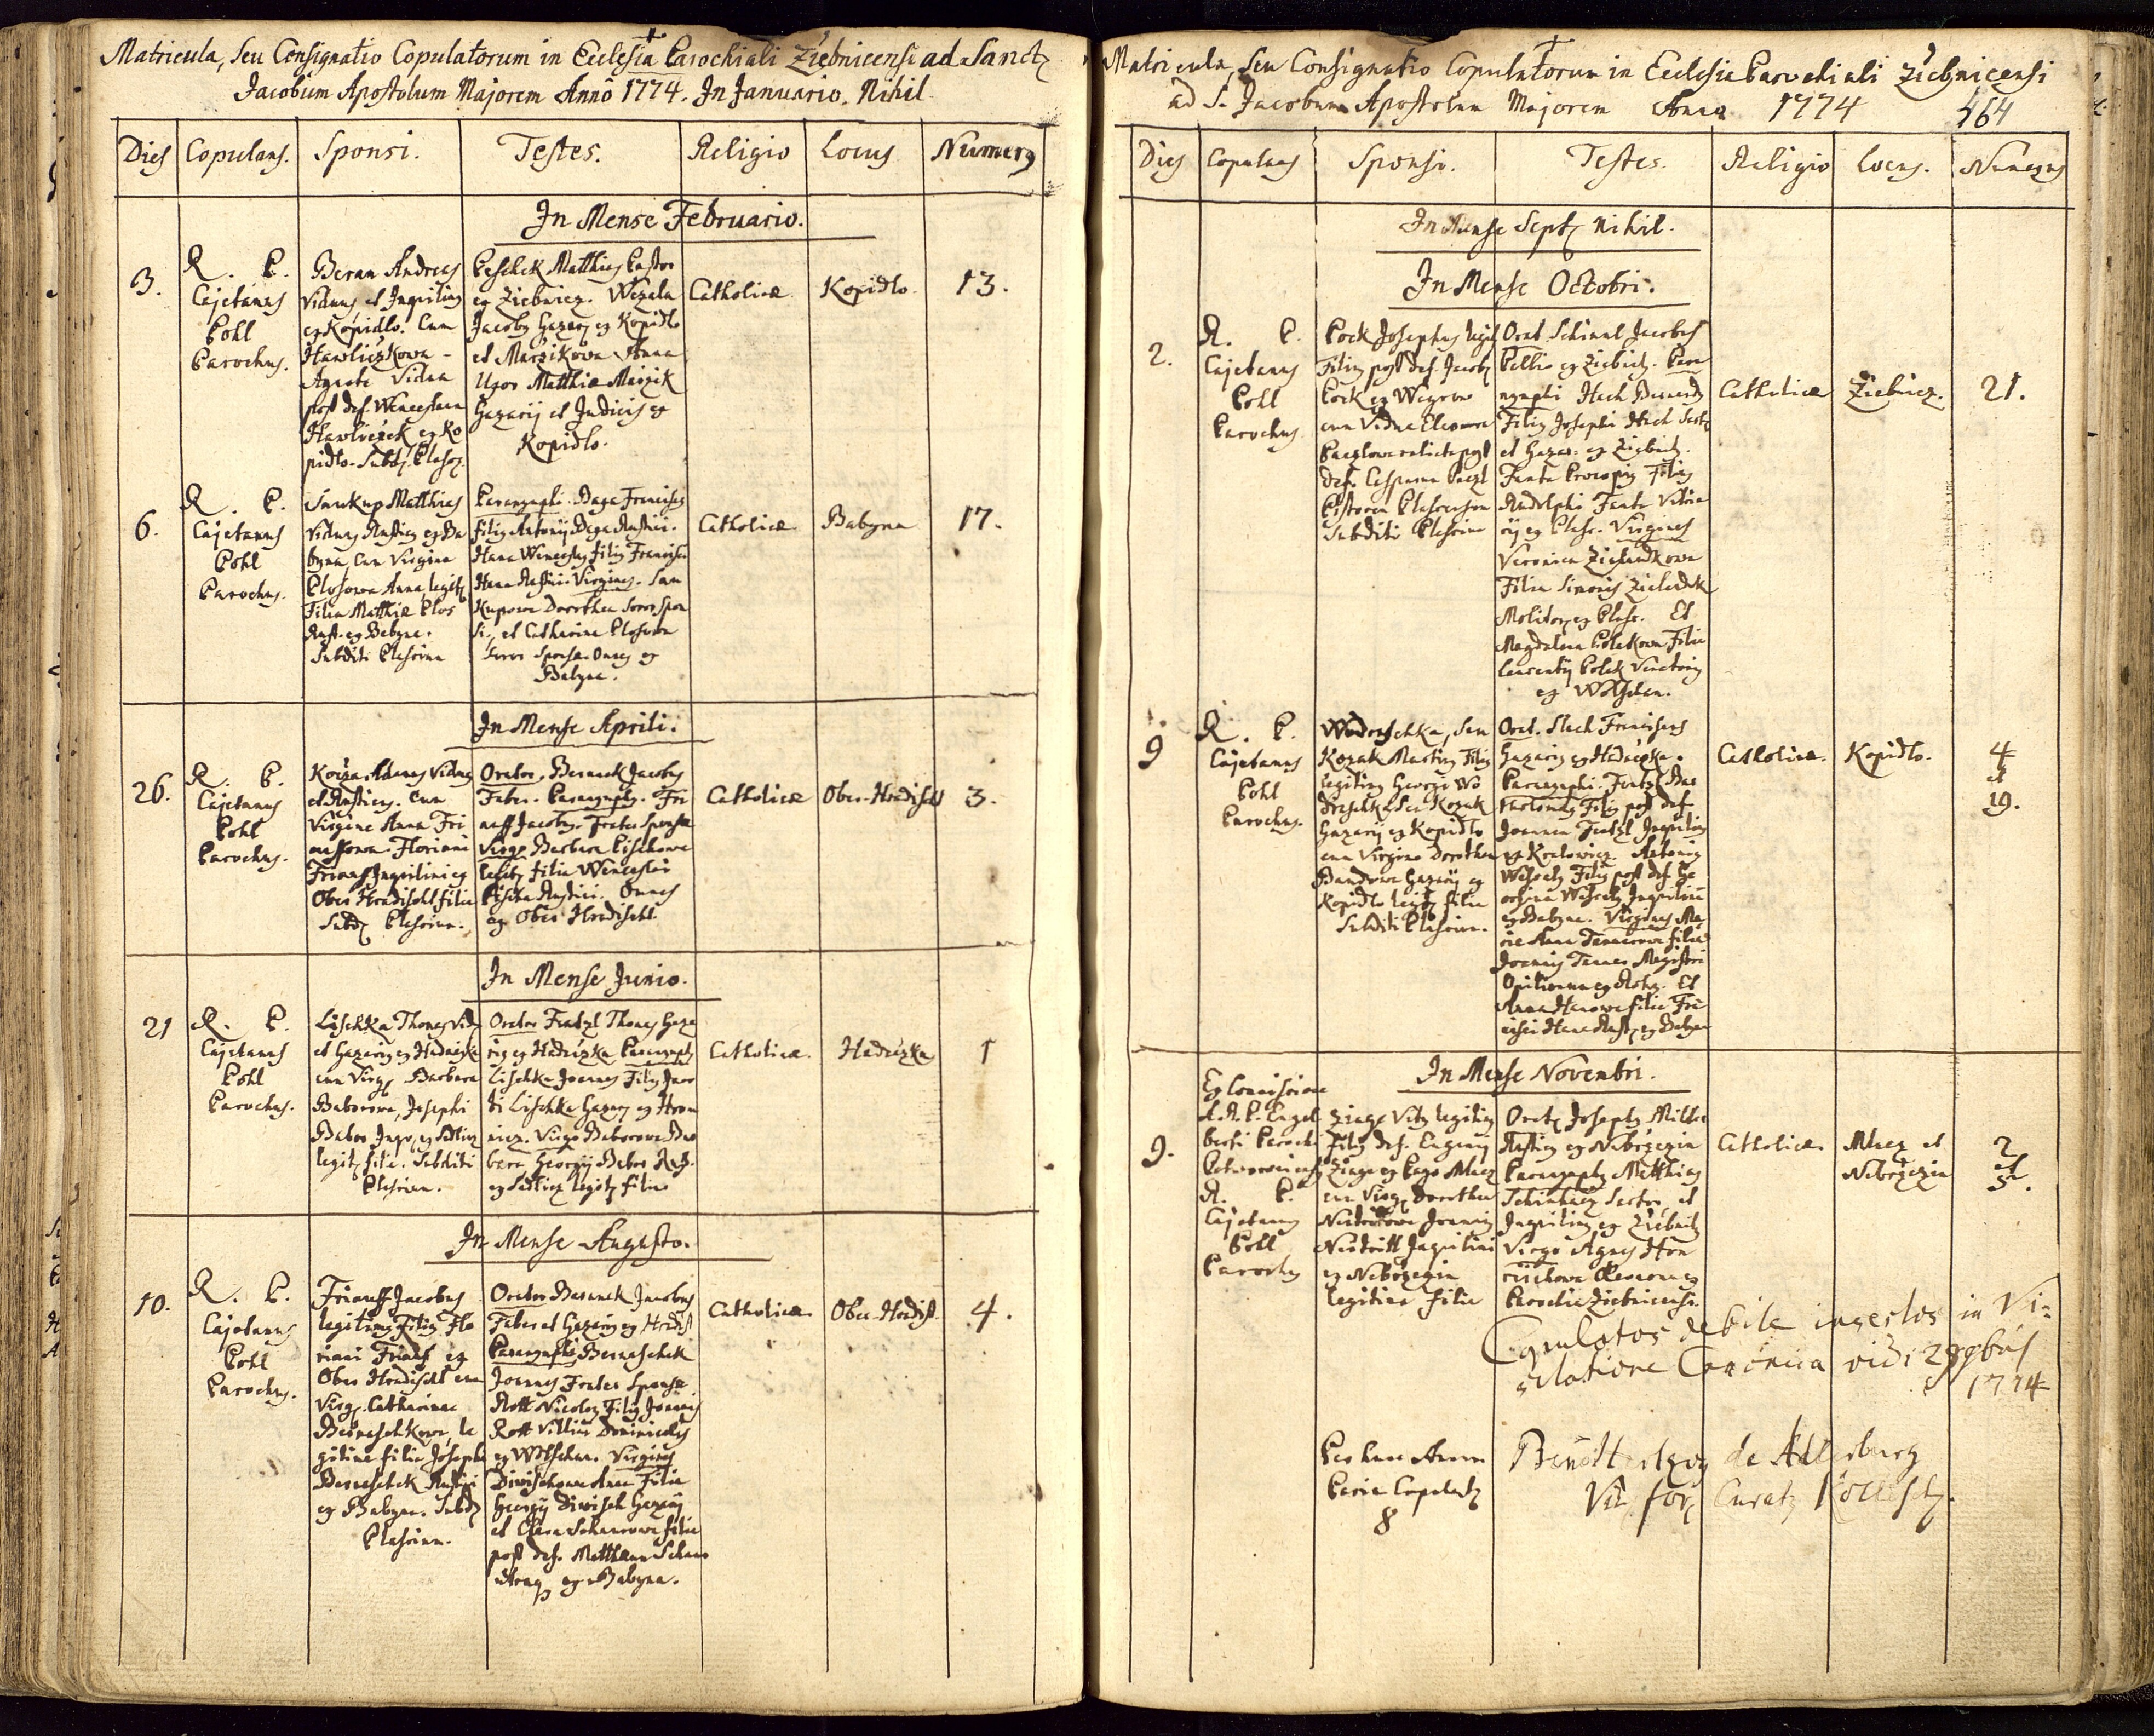 Matricula, seu Consignatio Copulatorum in Ecclesia Parochiali Ziebnicensi ad Sanct
Jacobum Apostolum Majorem Anno 1774. In Januario. Nihil.
Dies Copulans. Sponsi. Testes. Religio Locus Numerg
In Mense Februario.
3.
R. P.
Cajetanus
Pohl
Parochus.
Beran Andreas
Viduus, et Inquilinq
ex Kopidlo. Cum
Hawliczkowa
Agneta Vidua
post def. Wenceslaum
Hawliczek ex Ko
pidlo. Subd. Plass.
Peschek Matthias Pastor
ex Ziebnicz. Wezela
Jacobg Gazarg ex Kopidlo
et Marzikowa Anna
Uxor Matthiæ Marzik
Gazarij et Judicis ex
Kopidlo.
Catholica
Kopidlo
13.
6.
R. P.
Cajetanus
Pohl
Parochus.
Saukup Matthias
Viduus Rusticg ex Ba
byna, Cum Virgine
Plosowa Anna, legit
Filia Matthiæ Plos
Rust. ex Babyna.
Subditi Plassina
Paranymphi. Baxa Franciscg
filig Antonij Baxa Rustici.
Hana Wenceslaus filig Francisci
Hana Rustici. Virgines. Sau
kupowa Dorothea soror Spon
si, et Catharina Plosowa
soror Sponsæ. Omnes ex
Babyna.
Catholica
Babyna
17.
In Mense Aprili.
26.
R. P.
Cajetanus
Pohl
Parochus.
Adamg Viduus
et Rusticus. cum
Virgine Anna Fri
aufowa. Floriani
Friauf Inquilini ex
Ober Hradischt filia
Subd. Plassina.
Orator. Beranek Jacobus
Faber. Paranymphg. Fri
auff Jacobus. Frater Sponsæ
Virgo Barbara Lischkowa
legit. filia Wenceslai
Lischka Rustici. Omnes
ex Ober Hradischt.
Catholica
Ober-Hradischt
3.
In Mense Junio.
21
R. P.
Cajetanus
Pohl
Parochus.
Lischka Thomas Vid.
et Gazarig ex Hadaczka
cum Virg. Barbara
Baborowa, Josephi
Babor Inqu. ex Sedlicz
legit. filia. Subditi
Plassina.
Orator Frantzl Thomas Gaza
rig ex Hadaczka Paranymph.
Lischka Joannes Filig Jaco
bi Lischka Gazarij ex Hrom
nicz. Virgo Baborowa Bar
bara, Georgij Babor
ex Sedlicz legit. filia.
Catholica.
Hadaczka
1
In Mense Augusto.
10.
R. P.
Cajetanus
Pohl
Parochus.
Friauff Jacobus
legitimg Filig Flo
riani Friauf ex
Ober Hradischt cum
Virg. Catharina
Beraschkowa, le
gitima filia Josephi
Beraschek Rustici
ex Babyna. Subd.
Plassina.
Orator Beranek Jacobus
Faber et Gazarig ex Hradist
Paranymphi Beraschek
Joannes Frater Sponsæ
Rott Nicolaus Filig Joannis
Rott Villici Dominicalis
ex Wolschan. Virgines
Diwischowa Anna Filia
Georgij Diwisch Gazarij
et Clara Schanrowa filia
post def. Matthæum
utraq ex Babyna.
Catholica
Ober-Hradist.
4.
Matricula, seu Consignatio Copulatorum in Ecclesia Parochiali Ziebnicensi
ad S. Jacobum Apostolum Majorem Anno 1774
464
Dies Copulans Sponsi. Testes. Religio Locus. Numerus
In Mense Sept. Nihil.
In Mense Octobri.
2.
R. P.
Cajetanus
Pohl
Parochus
Pock Josephus legit
Filig post def. Jacob
Pock ex Wayrow
cum Vidua Eleonora
relicta post
def. Casparum
Pistorem Plassensem
Subditi Plassina
Orat. Schimal Jacobus
Pellio ex Ziebnitz. Para
nymphi Hach Bernardg
Filig Josephi Hach
et Gazar. ex Ziebnitz.
Fanta Procopig Filig
Rudolphi Fanta Vitria
rij ex Plass. Virgines
Veronica Zielendkowa
Filia Simonis Zielendek
Molitor. ex Plass. Et
Magdalena Polakowa Filia
Laurentij Polak Venatoris
ex Wolschan.
Catholica
Ziebnicz.
21.
9
R. P.
Cajetanus
Pohl
Parochus.
Wodraschka, seu
Kozak Marting Filig
legitimg Georgij Wo
draschka seu Kozak
Gazarij ex Kopidlo
cum Virgine Dorothea
Gazarij ex
Kopidlo legit. filia
Subditi Plassina.
Orat. Stach Franciscus
Gazarig ex Hadaczka.
Paranymphi. Frantzl Bar
tholomæg Filig post def.
Joannem Frantzl Inquilinum
ex Kralowicz. Antonig
Filig post def. Ge
orgium Inquilinum
ex Babyna. Virgines Ma
ria Anna Tamerowa filia
Joannis Tamer Magistri
Opilionum ex Rohy. Et
Anna Hanowa filia Fran
cisci Hana Rust. ex Babyna
Catholica.
Kopidlo.
4
et
19.
In Mense Novembri.
9.
Ex Comissione
A. R. P. Engel
berti Paroch
R. P.
Cajetanus
Pohl
Parochus
Ziaga Vitg legitimg
Filig def. Eugenij
Ziaga ex Pago Mlacz
cum Virg. Dorothea
Joannis
Neidritt Inquilini
ex Nebrzezin
legitima filia
Orat. Josephg Miller
Rusticg ex Nebrzezin
Paranymphg Matthias
Sartor, et
Inquilinus ex Ziebnitz
Virgo Agnes Hon
zischowa
Parochia Ziebnicensi.
Catholica.
Mlacz et
Nebrzezin
2
et
5.
Copulatos debite insertos in Vi=
sitatione Canonica vidi 9bris
1774
Per hunc Annum
Paria Copulat.
8
Bened. Hertzog de Adlersburg
Vic. for. Curat.